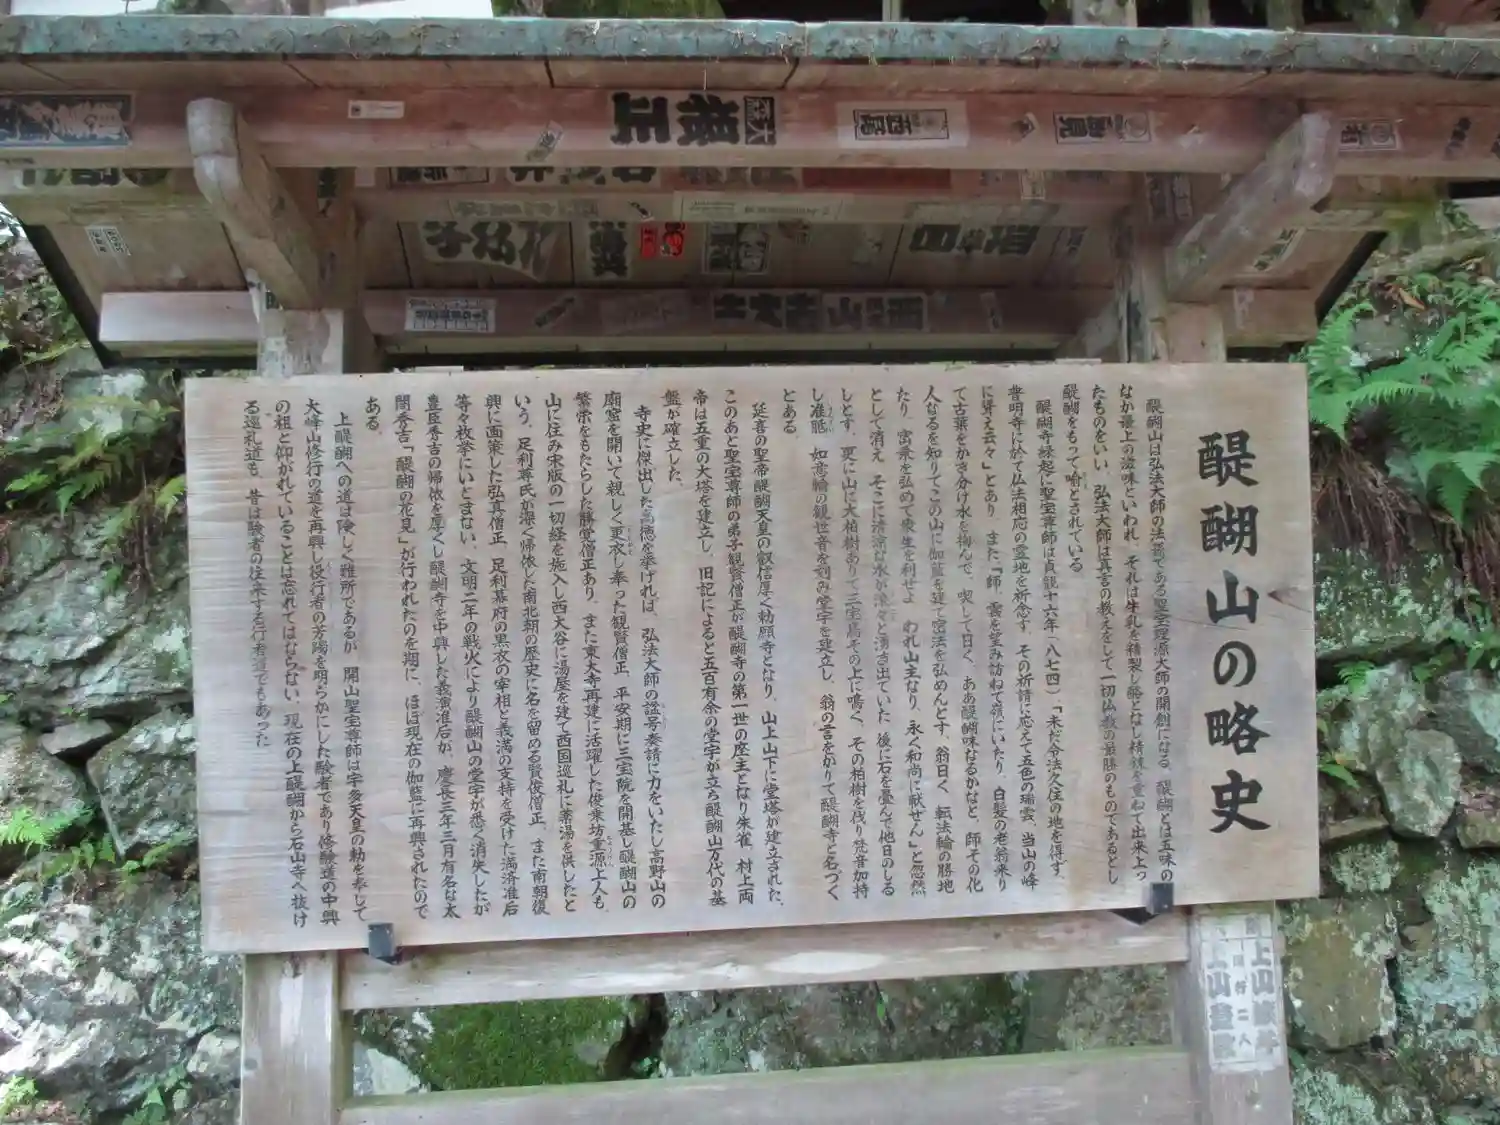 醍醐山の略史
醍醐山は弘法大師の法孫である聖宝理源大師の開創になる。醍醐とは五味の
なか最上の滋味といわれ、それは牛乳を精製し酪となし精錬を重ねて出来上っ
たものをいい、弘法大師は真言の教えをして一切仏教の最勝のものであるとし
醍醐をもって喩とされている。
醍醐寺縁起に聖宝尊師は貞観十六年(八七四)「未だ令法久住の地を得ず、
普明寺に於て仏法相応の霊地を祈念す、その祈請に応えて五色の瑞雲、当山の峰
に聳え云々」とあり また「師、雲を望み訪ねて嶺にいたり、白髪の老翁来り
て古葉をかき分け水を掬んで、喫して曰く、ああ醍醐味なるかなと、師その化
人なるを知りてこの山に伽藍を建て密法を弘めんとす、翁曰く、転法輪の勝地
たり、密乗を弘めて衆生を利せよ われ山主なり、永く和尚に献せん」と忽然
として消え そこに清涼な水が滾々と湧き出ていた 後に石を畳んで他日のしる
しとす、更に山に大柏樹ありて三宝鳥その上に鳴く、その柏樹を伐り梵音加持
し准胝 如意輪の観世音を刻み堂宇を建立し、翁の言をかりて醍醐寺と名づく
とある
延喜の聖帝醍醐天皇の叡信厚く勅願寺となり、山上山下に堂塔が建立された、
このあと聖宝尊師の弟子観賢僧正が醍醐寺の第一世の座主となり朱雀、村上両
帝は五重の大塔を建立し、旧記によると五百有余の堂宇が立ち醍醐山万代の基
盤が確立した、
寺史に傑出した高徳を挙げれば、弘法大師の諡号奏請に力をいたし高野山の
廟窟を開いて親しく更衣し奉った観賢僧正、平安期に三宝院を開基し醍醐山の
繁栄をもたらした勝覚僧正あり、また東大寺再建に活躍した俊乗坊重源上人も
山に住み宋版の一切経を施入し西大谷に湯屋を建て西国巡礼に薬湯を供したと
いう、足利尊氏が深く帰依した南北朝の歴史に名を留める賢俊僧正、また南朝復
興に画策した弘真僧正、足利幕府の黒衣の宰相と義満の支持を受けた満済准后
等々枚挙にいとまない、文明二年の戦火により醍醐山の堂宇が悉く消失したが
豊臣秀吉の帰依を厚くし醍醐寺を中興した義演准后が、慶長三年三月有名な太
閤秀吉「醍醐の花見」が行われたのを期に、ほぼ現在の伽藍に再興されたので
ある
上醍醐への道は険しく難所であるが 開山聖宝尊師は宇多天皇の勅を奉して
大峰山修行の道を再興し役行者の芳躅を明らかにした験者であり修験道の中興
の祖と仰がれていることは忘れてはならない、現在の上醍醐から石山寺へ抜け
る巡礼道も 昔は験者の往来する行者道でもあった